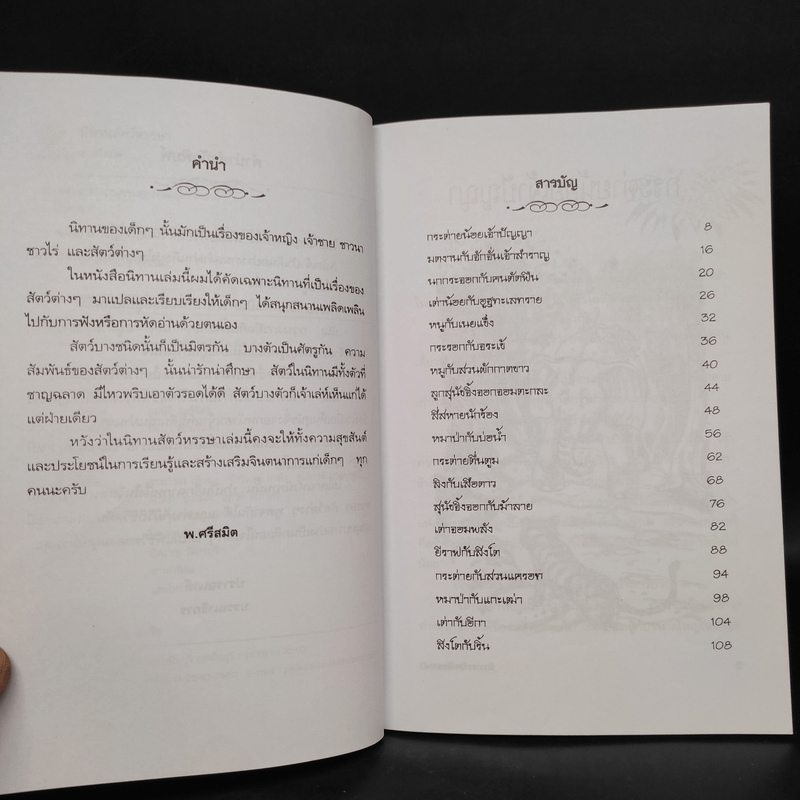 คำนำ
นิทานของเด็กๆ นั้นมักเป็นเรื่องของเจ้าหญิง เจ้าชาย ชาวนา
ชาวไร่ และสัตว์ต่างๆ
ในหนังสือนิทานเล่มนี้ผมได้คัดเฉพาะนิทานที่เป็นเรื่องของ
สัตว์ต่างๆ มาแปลและเรียบเรียงให้เด็กๆ ได้สนุกสนานเพลิดเพลิน
ไปกับการฟังหรือการหัดอ่านด้วยตนเอง
สัตว์บางชนิดนั้นก็เป็นมิตรกัน บางตัวเป็นศัตรูกัน ความ
สัมพันธ์ของสัตว์ต่างๆ นั้นน่ารักน่าศึกษา สัตว์ในนิทานมีทั้งตัวที่
ชาญฉลาด มีไหวพริบเอาตัวรอดได้ดี สัตว์บางตัวก็เจ้าเล่ห์เห็นแก่ได้
แต่ฝ่ายเดียว
หวังว่าในนิทานสัตว์หรรษาเล่มนี้คงจะให้ทั้งความสุขสันต์
และประโยชน์ในการเรียนรู้และสร้างเสริมจินตนาการแก่เด็กๆ ทุก
คนนะครับ
พ.ศรีสมิต
สารบัญ
กระต่ายน้อยเจ้าปัญญา 8
มดงานกับจักจั่นเจ้าสำราญ 16
นกกระจอกกับคนตัดฟืน 20
เต่าน้อยกับงูทะเลทราย 26
หนูกับเนยแข็ง 32
กระรอกกับจระเข้ 36
หมูกับสวนผักกาดขาว 40
ลูกสุนัขจิ้งจอกจอมตะกละ 44
สี่สหายนักร้อง 48
หมาป่ากับบ่อน้ำ 56
กระต่ายตื่นตูม 62
ลิงกับเสือดาว 68
สุนัขจิ้งจอกกับม้าลาย 76
เต่าจอมพลัง 82
ยีราฟกับสิงโต 88
กระต่ายกับสวนแครอท 94
หมาป่ากับแกะเฒ่า 98
เต่ากับอีกา 104
สิงโตกับริ้น 108